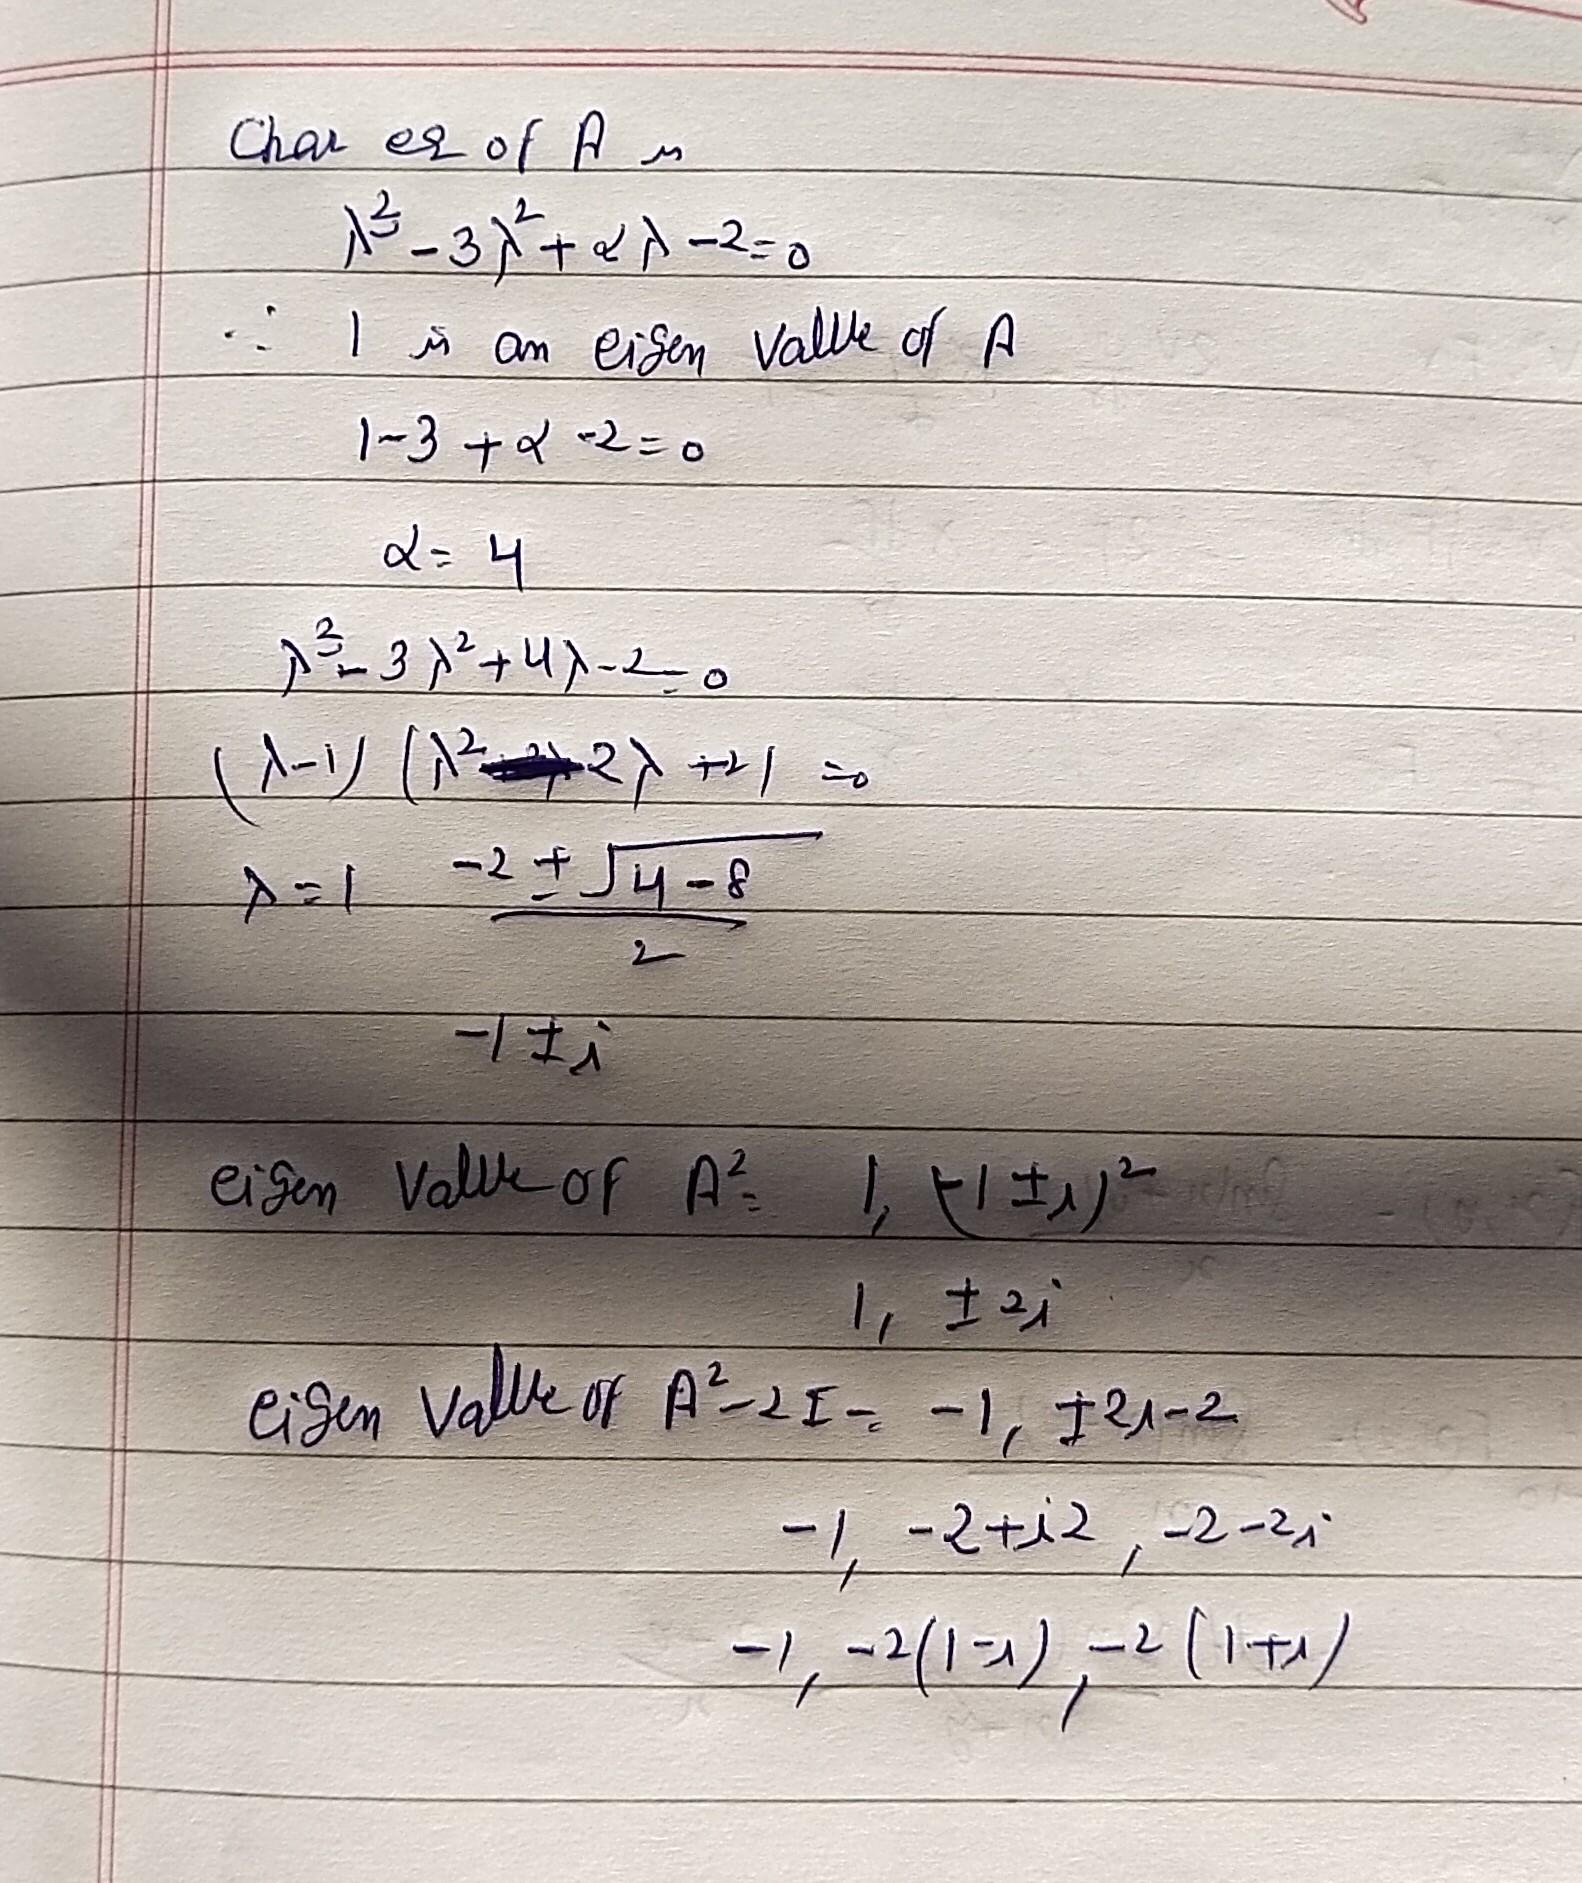 Char eq of A is
λ³ - 3λ² + αλ - 2 = 0
∵ 1 is an eigen value of A
1 - 3 + α - 2 = 0
α = 4
λ³ - 3λ² + 4λ - 2 = 0
(λ-1) (λ² 2λ + 2) = 0
λ = 1 (-2 ± √(4-8))/2
-1 ± i
eigen value of A² = 1, (-1 ± i)²
1, ± 2i
eigen value of A² - 2I = -1, ± 2i - 2
-1, -2 + i2, -2 - 2i
-1, -2(1-i), -2(1+i)